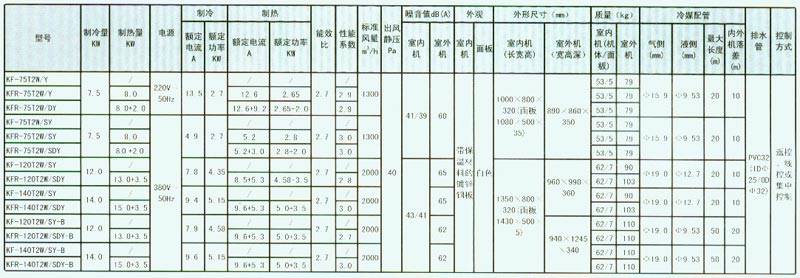 型号 制冷量 KW 制热量 KW 电源 制冷 制热 能效比 性能系数 标准风量 m³/h 出风静压 Pa 噪音值dB(A) 外观 外形尺寸 (mm) 质量 (kg) 冷媒配管 排水管 控制方式
额定电流 A 额定功率 KW 额定电流 A 额定功率 KW 室内机 室外机 室内机 面板 室内机 (长宽高) 室外机 (宽高深) 室内机(机体/面板) 室外机 气侧 (mm) 液侧 (mm) 最大长度 (m) 内外机落差 (m)
KF-75T2W/Y 7.5 / 220V 50Hz 13.5 2.7 / / 2.7 / 1300 40 41/39 60 带保温材料的镀锌钢板 白色 1000×800×320(面板1080/500×35) 890×860×350 53/5 79 Φ15.9 Φ9.53 20 10 PVC32(IDΦ25/ODΦ32) 遥控、线控或集中控制
KFR-75T2W/Y 8.0 12.6 2.65 2.9 53/5 79
KFR-75T2W/DY 8.0+2.0 12.6+9.2 2.65-2.0 2.9 53/5 79
KF-75T2W/SY 7.5 / 380V 50Hz 4.9 2.7 / / 2.7 / 1300 53/5 79 Φ15.9 Φ9.53 20 10
KFR-75T2W/SY 8.0 5.2 2.8 3.0 53/5 79
KFR-75T2W/SDY 8.0+2.0 5.2+3.0 2.8-2.0 3.0 53/5 79
KF-120T2W/SY 12.0 / 7.8 4.35 / / 2.7 / 2000 43/41 65 1350×800×320(面板1430×500×5) 960×990×360 62/7 90 Φ19.0 Φ12.7 20 10
KFR-120T2W/SDY 13.0+3.5 8.5+5.3 4.58-3.5 2.8 62/7 103
KF-140T2W/SY 14.0 / 9.4 5.15 / / 2.7 / 2000 65 62/7 90 Φ19.0 Φ12.7 20 10
KFR-140T2W/SDY 15.0+3.5 9.6+5.3 5.0+3.5 3.0 62/7 103
KF-120T2W/SY-B 12.0 / 7.9 4.58 / / 2.7 / 2000 62 940×1245×340 62/7 110 Φ19.0 Φ9.53 50 20
KFR-120T2W/SDY-B 13.0+3.5 9.6+5.3 5.0+3.5 2.7 62/7 110
KF-140T2W/SY-B 14.0 / 9.6 5.15 / / 2.7 / 2000 62 62/7 110 Φ19.0 Φ9.53 50 20
KFR-140T2W/SDY-B 15.0+3.5 9.6+5.3 5.0+3.5 3.0 62/7 110